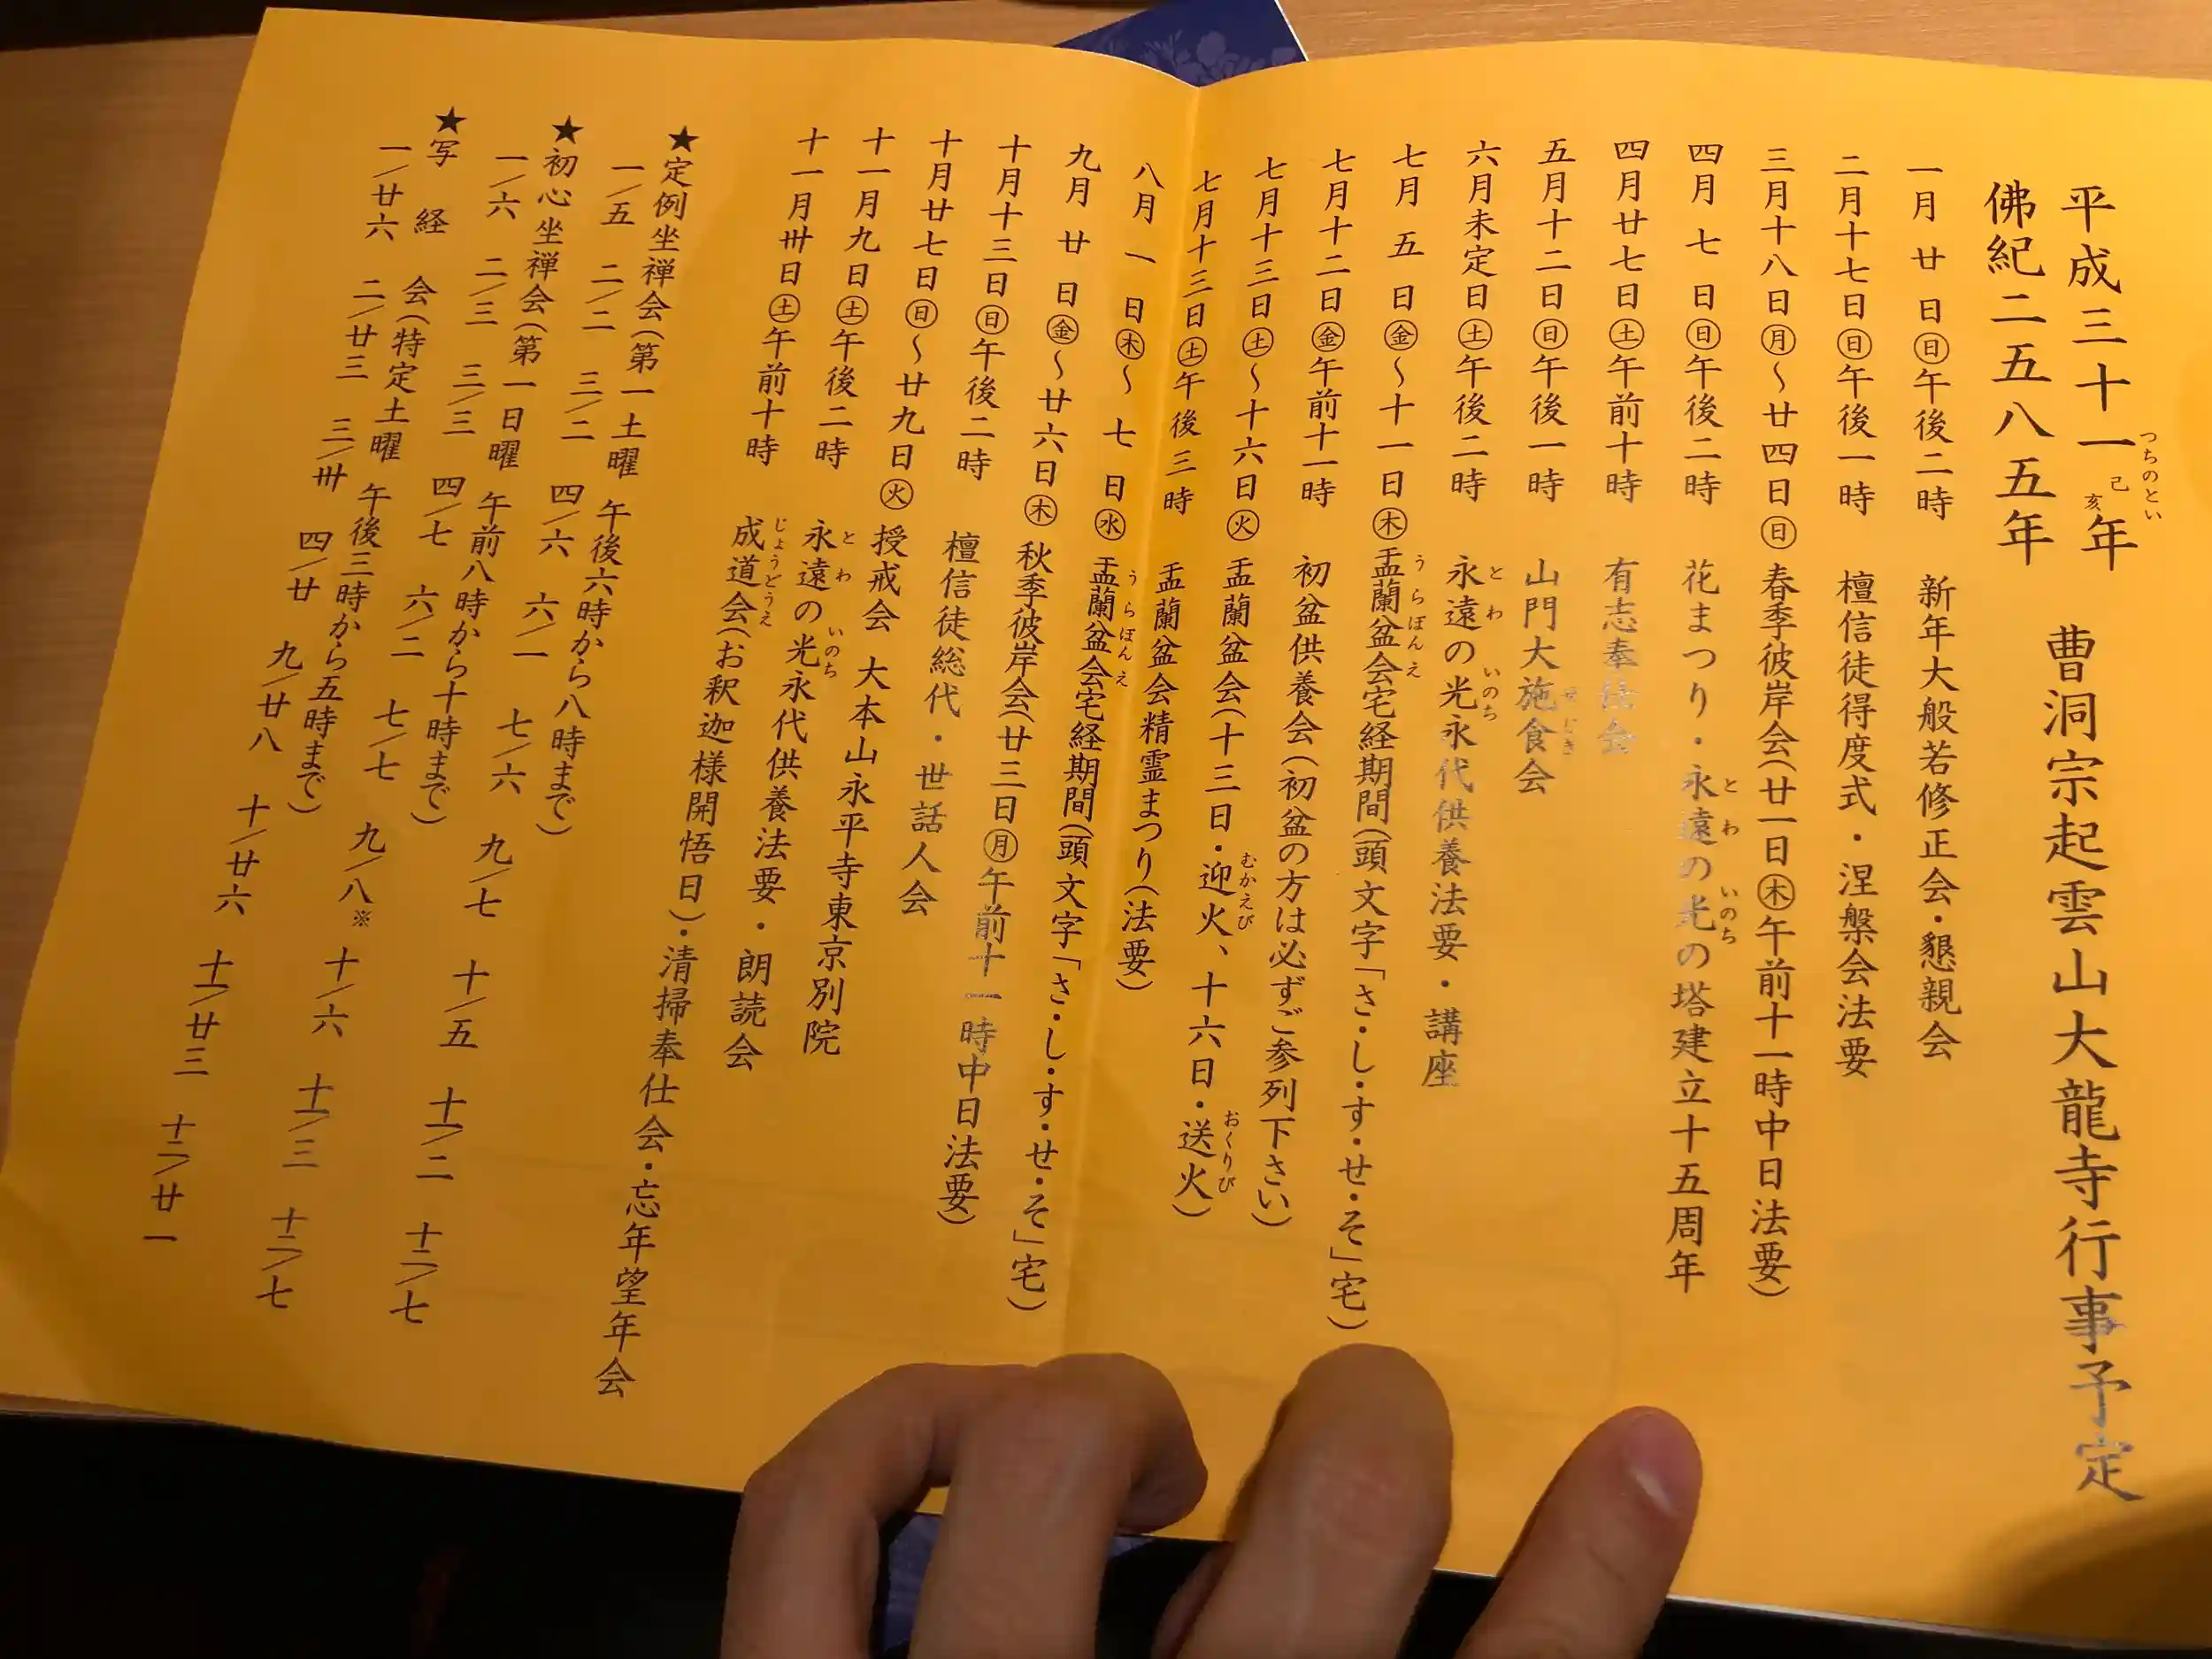 平成三十一己亥年 曹洞宗起雲山大龍寺行事予定
つちのとい
佛紀二五八五年
一月廿日㊐午後二時 新年大般若修正会・懇親会
二月十七日㊐午後一時 檀信徒得度式・涅槃会法要
三月十八日㊊～廿四日㊐ 春季彼岸会(廿一日㊍午前十一時中日法要)
四月七日㊐午後二時 花まつり・永遠の光の塔建立十五周年
とわ いのち
四月廿七日㊏午前十時 有志奉仕会
五月十二日㊐午後一時 山門大施食会
せじき
六月未定日㊏午後二時 永遠の光永代供養法要・講座
とわ いのち
七月五日㊎～十一日㊍ 盂蘭盆会宅経期間(頭文字「さ・し・す・せ・そ」宅)
うらぼんえ
七月十二日㊎午前十一時 初盆供養会(初盆の方は必ずご参列下さい)
七月十三日㊏～十六日㊋ 盂蘭盆会(十三日・迎火、十六日・送火)
むかえび おくりび
七月十三日㊏午後三時 盂蘭盆会精霊まつり(法要)
八月一日㊍～七日㊌ 盂蘭盆会宅経期間(頭文字「さ・し・す・せ・そ」宅)
うらぼんえ
九月廿日㊎～廿六日㊍ 秋季彼岸会(廿三日㊊午前十一時中日法要)
十月十三日㊐午後二時 檀信徒総代・世話人会
十月廿七日㊐～廿九日㊋ 授戒会 大本山永平寺東京別院
十一月九日㊏午後二時 永遠の光永代供養法要・朗読会
とわ いのち
十一月卅日㊏午前十時 成道会(お釈迦様開悟日)・清掃奉仕会・忘年望年会
じょうどうえ
★定例坐禅会(第一土曜 午後六時から八時まで)
一/五 二/二 三/二 四/六 六/一 七/六 九/七 十/五 十一/二 十二/七
★初心坐禅会(第一日曜 午前八時から十時まで)
一/六 二/三 三/三 四/七 六/二 七/七 九/八※ 十/六 十一/三 十二/七
★写経会(特定土曜 午後三時から五時まで)
一/廿六 二/廿三 三/卅 四/廿 九/廿八 十/廿六 十一/廿三 十二/廿一